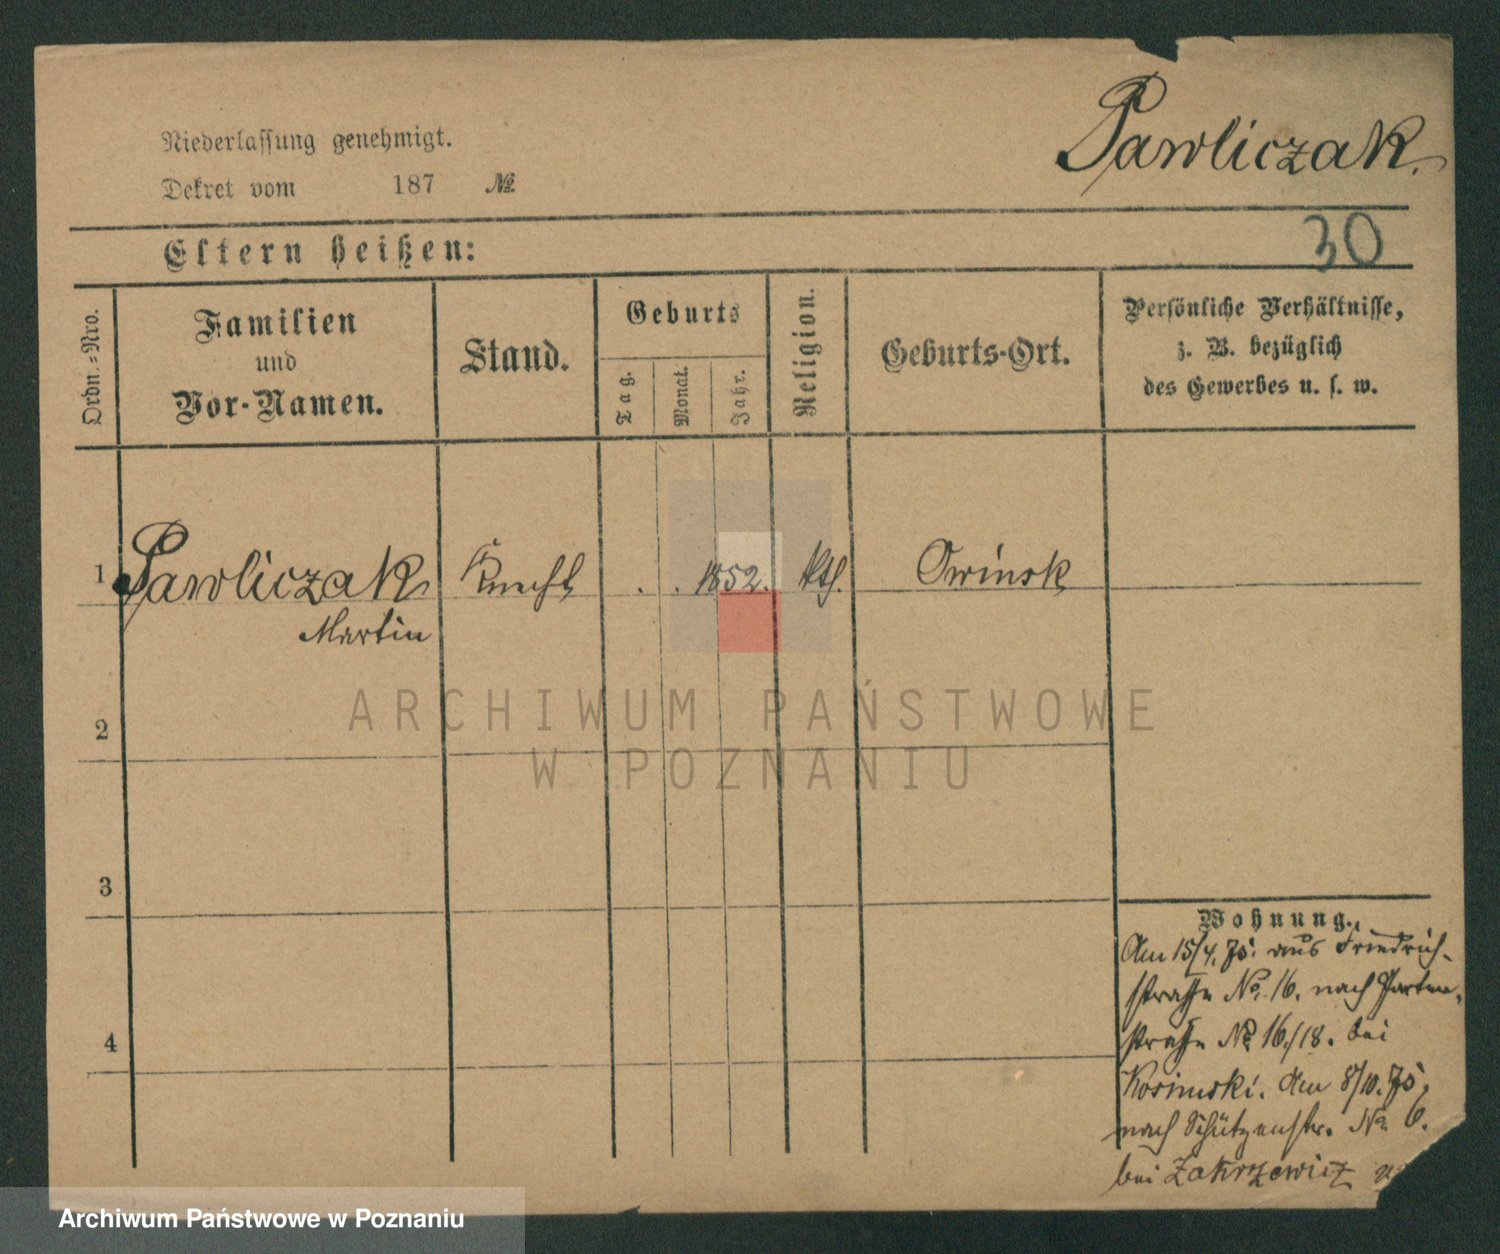 Pawliczak.
Niederlassung genehmigt.
Dekret vom 187 №
30
Eltern heißen:
Ordn.=Nro.
Familien
und
Vor-Namen.
Stand.
Geburts
Tag.
Monat.
Jahr.
Religion.
Geburts-Ort.
Persönliche Verhältnisse,
z. B. bezüglich
des Gewerbes u. s. w.
1 Pawliczak Knecht . . 1852. kth. Owinsk
Martin
2
3
4
Wohnung.
Am 15/4. 75. aus Friedrich-
straße No. 16. nach Garten-
straße No 16./18. bei
Kosinski. Am 8/10. 75.
nach Schützenstr. No. 6.
bei Zakrzewicz
ARCHIWUM PAŃSTWOWE
W POZNANIU
Archiwum Państwowe w Poznaniu